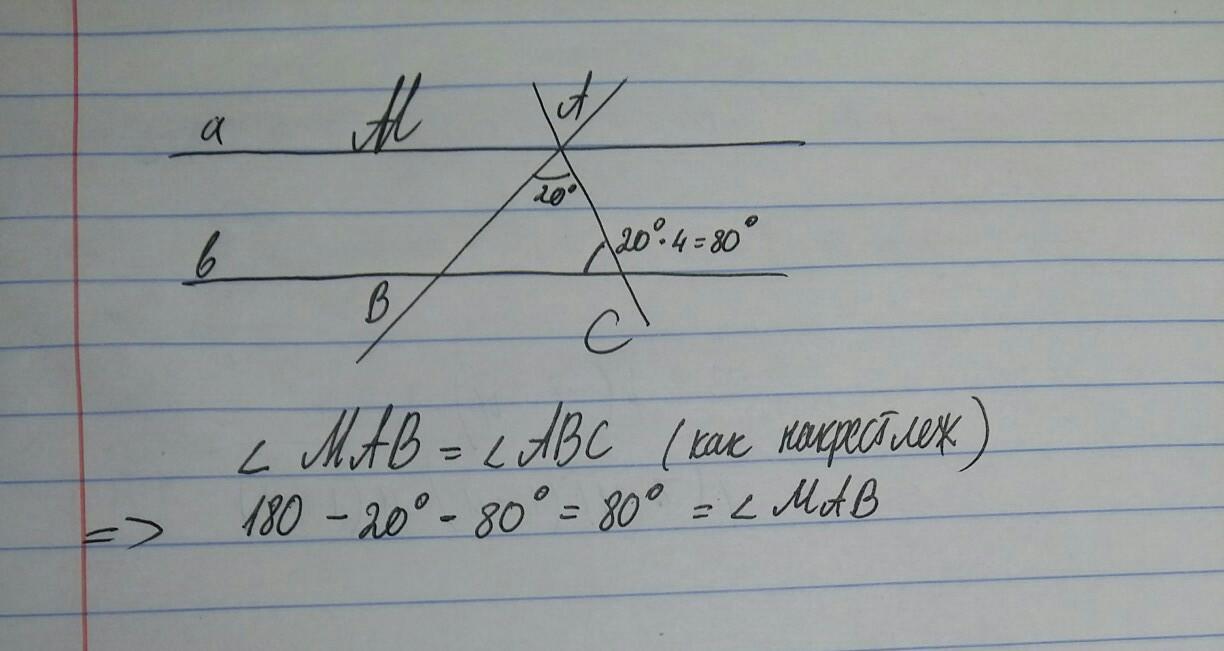 a M A
20°
20°·4=80°
b
B
C
∠ MAB = ∠ ABC (как накрест леж)
=> 180 - 20° - 80° = 80° = ∠ MAB